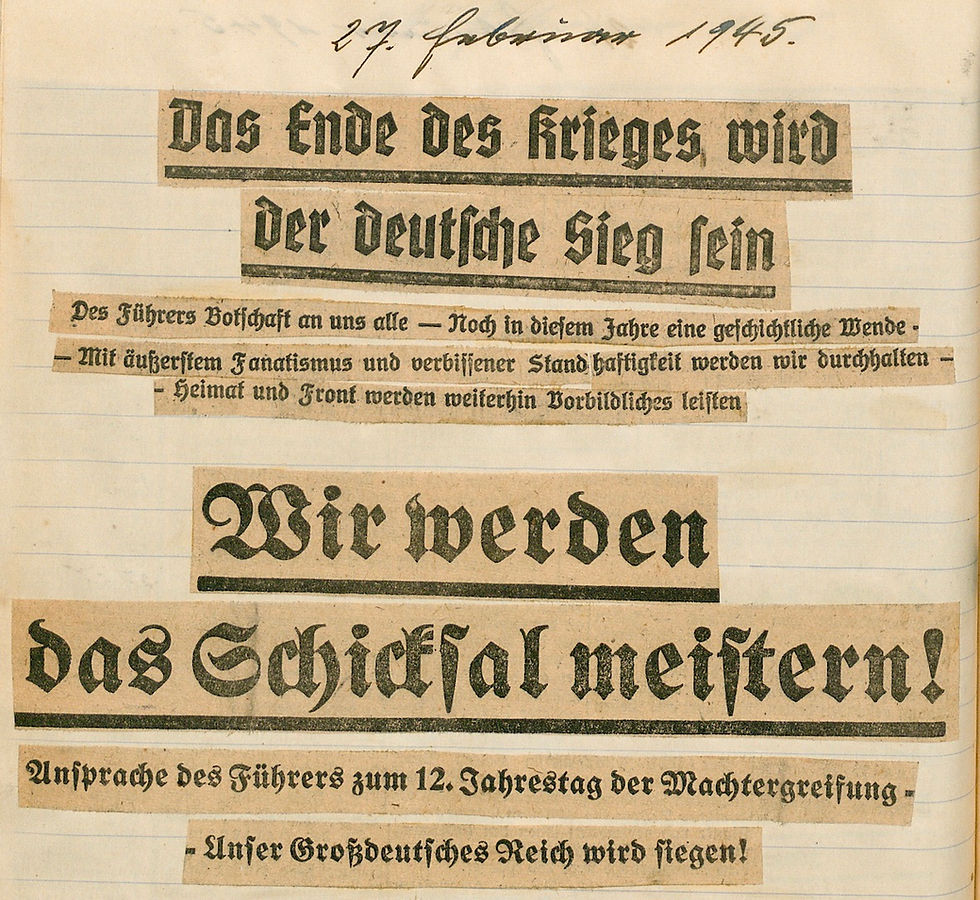 27. Februar 1945.
Das Ende des Krieges wird
der deutsche Sieg sein
Des Führers Botschaft an uns alle — Noch in diesem Jahre eine geschichtliche Wende -
— Mit äußerstem Fanatismus und verbissener Standhaftigkeit werden wir durchhalten —
- Heimat und Front werden weiterhin Vorbildliches leisten
Wir werden
das Schicksal meistern!
Ansprache des Führers zum 12. Jahrestag der Machtergreifung -
- Unser Großdeutsches Reich wird siegen!